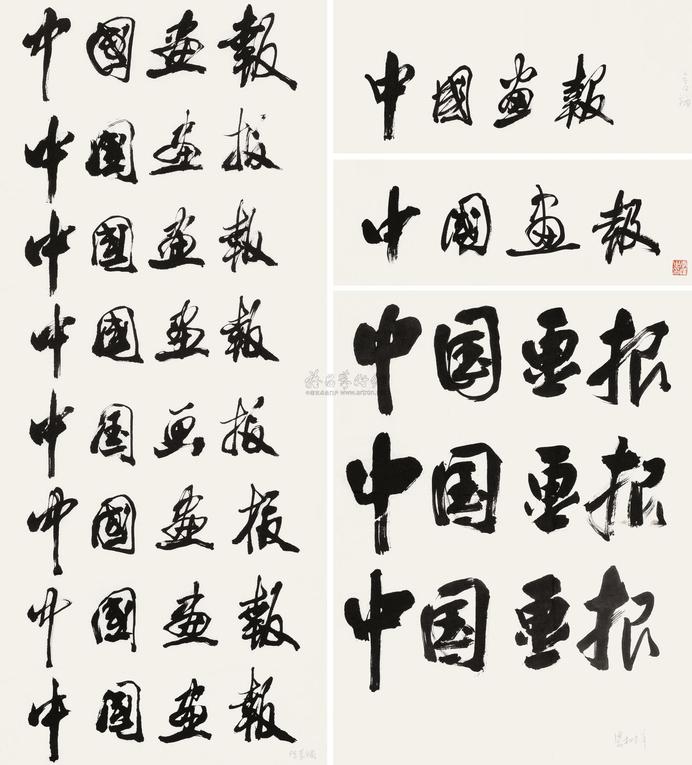 中國畫報
中国畫报
中國畫報
中國畫報
中国画报
中國畫报
中國畫報
中国畫報
中國畫報
中國畫報
中国画报
中国画报
中国画报
www.artron.net